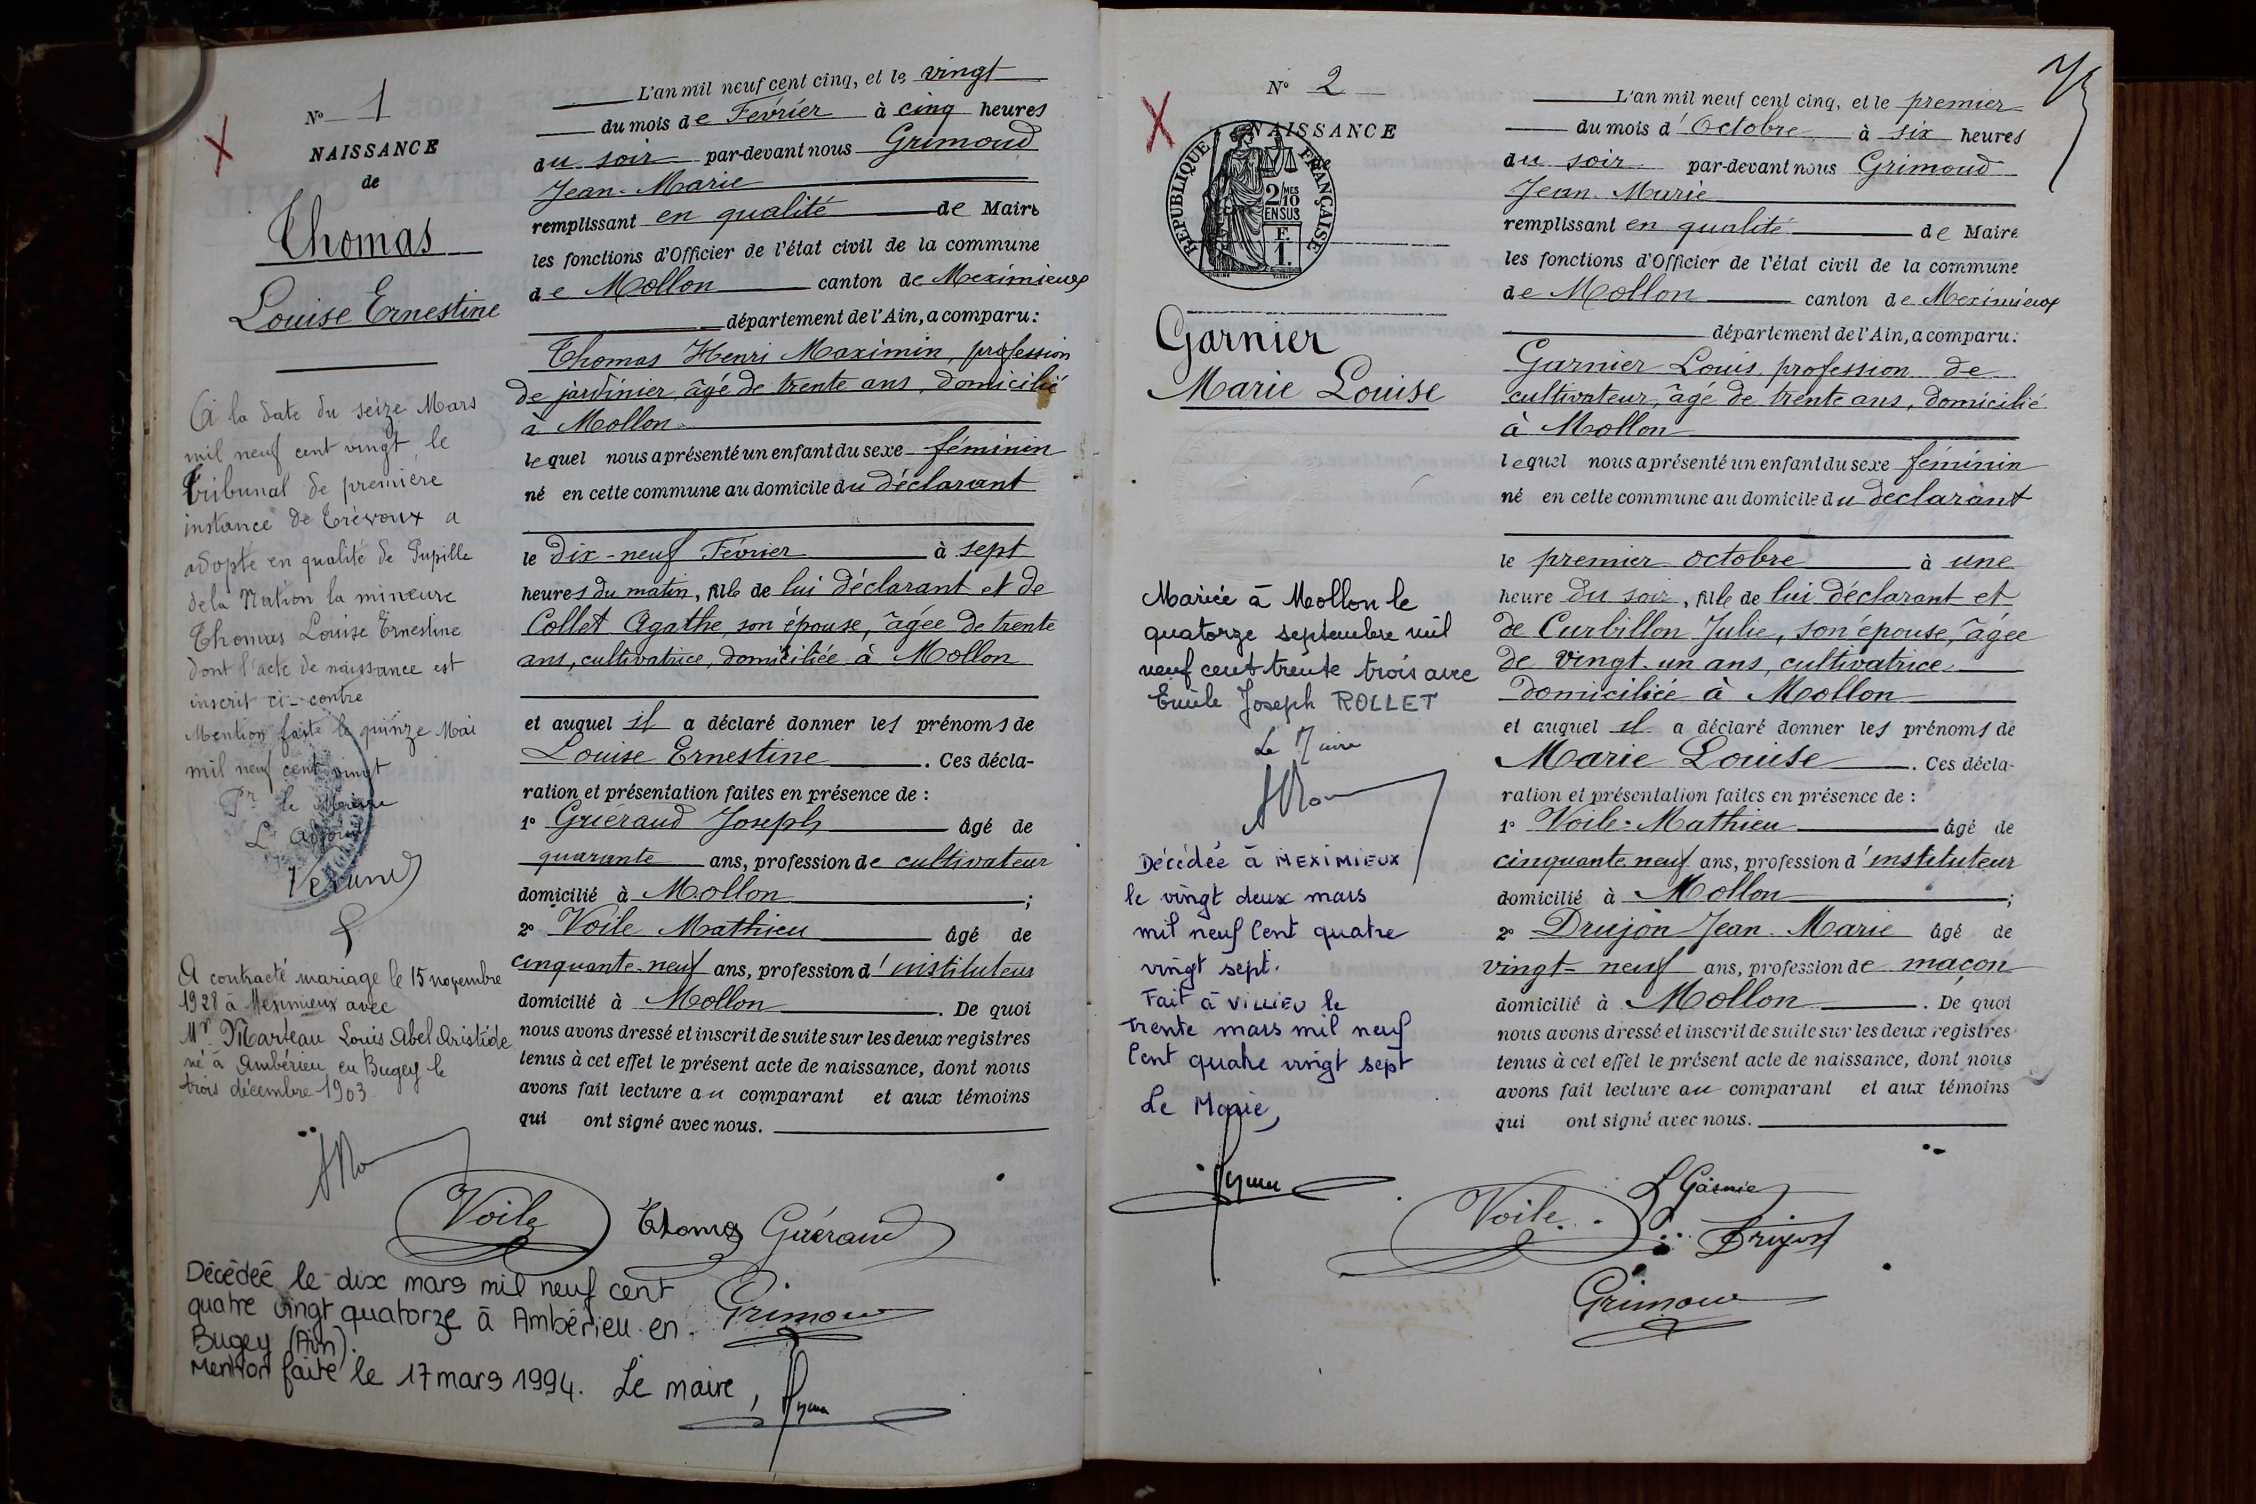 N° 1
NAISSANCE
de
Thomas
Louise Ernestine
A la date du seize Mars
mil neuf cent vingt, le
tribunal de première
instance de Trévoux a
adopté en qualité de Pupille
de la Nation la mineure
Thomas Louise Ernestine
dont l'acte de naissance est
inscrit ci-contre
Mention faite le quinze Mai
mil neuf cent vingt
Pr le Maire
L'adjoint
A contracté mariage le 15 novembre
1928 à Meximieux avec
Mr Marteau Louis Abel Aristide
né à Ambérieu en Bugey le
trois décembre 1903
L'an mil neuf cent cinq, et le vingt
du mois de Février à cinq heures
du soir par-devant nous Grimoud
Jean-Marie
remplissant en qualité de Maire
les fonctions d'Officier de l'état civil de la commune
de Mollon canton de Meximieux
département de l'Ain, a comparu :
Thomas Henri Maximin, profession
de jardinier, âgé de trente ans, domicilié
à Mollon
lequel nous a présenté un enfant du sexe féminin
né en cette commune au domicile du déclarant
le dix-neuf Février à sept
heures du matin, fille de lui déclarant et de
Collet Agathe, son épouse, âgée de trente
ans, cultivatrice, domiciliée à Mollon
et auquel il a déclaré donner les prénoms de
Louise Ernestine. Ces décla-
ration et présentation faites en présence de :
1° Griéraud Joseph âgé de
quarante ans, profession de cultivateur
domicilié à Mollon ;
2° Voile Mathieu âgé de
cinquante-neuf ans, profession d'instituteur
domicilié à Mollon. De quoi
nous avons dressé et inscrit de suite sur les deux registres
tenus à cet effet le présent acte de naissance, dont nous
avons fait lecture au comparant et aux témoins
qui ont signé avec nous.
Voile Thomas Guéraud
Grimoud
Décédée le dix mars mil neuf cent
quatre vingt quatorze à Ambérieu-en-
Bugey (Ain).
Mention faite le 17 mars 1994. Le maire,
N° 2
NAISSANCE
de
REPUBLIQUE FRANÇAISE
2/10 MES
EN SUS
F.
1.
Garnier
Marie Louise
Mariée à Mollon le
quatorze septembre mil
neuf cent trente trois avec
Emile Joseph ROLLET
Le Maire
Décédée à MEXIMIEUX
le vingt deux mars
mil neuf cent quatre
vingt sept.
Fait à VILLIEU le
trente mars mil neuf
cent quatre vingt sept
Le Maire,
L'an mil neuf cent cinq, et le premier
du mois d'Octobre à six heures
du soir par-devant nous Grimoud
Jean-Marie
remplissant en qualité de Maire
les fonctions d'Officier de l'état civil de la commune
de Mollon canton de Meximieux
département de l'Ain, a comparu :
Garnier Louis, profession de
cultivateur, âgé de trente ans, domicilié
à Mollon
lequel nous a présenté un enfant du sexe féminin
né en cette commune au domicile du déclarant
le premier octobre à une
heure du soir, fille de lui déclarant et
de Curbillon Julie, son épouse, âgée
de vingt-un ans, cultivatrice
domiciliée à Mollon
et auquel il a déclaré donner les prénoms de
Marie Louise. Ces décla-
ration et présentation faites en présence de :
1° Voile Mathieu âgé de
cinquante neuf ans, profession d'instituteur
domicilié à Mollon ;
2° Drujon Jean-Marie âgé de
vingt-neuf ans, profession de maçon
domicilié à Mollon. De quoi
nous avons dressé et inscrit de suite sur les deux registres
tenus à cet effet le présent acte de naissance, dont nous
avons fait lecture au comparant et aux témoins
qui ont signé avec nous.
L Garnier
Voile Drujon
Grimoud